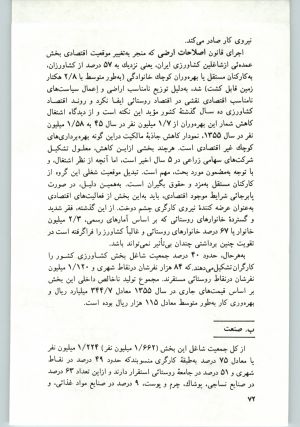 نیروی کار صادر می‌کند.
اجرای قانون اصلاحات ارضی که منجر به‌تغییر موقعیت اقتصادی بخش
عمده‌ئی ازشاغلین کشاورزی ایران، یعنی نزدیک به ۵۷ درصد از کشاورزان،
به‌کارکنان مستقل یا بهره‌وران کوچک خانوادگی (به‌طور متوسط با ۲/۸ هکتار
زمین قابل کشت) شد، به‌دلیل توزیع نامناسب اراضی و إعمال سیاست‌های
نامناسب اقتصادی نقشی در اقتصاد روستائی ایفا نکرد و روند اقتصاد
کشاورزی ده سال گذشتهٔ کشور مؤید این نکته است و از دیدگاه اشتغال
کاهش شمار این بهره‌وران از ۱/۷ میلیون نفر در سال ۴۵ به ۱/۵۸ میلیون
نفر در سال ۱۳۵۵، نمودار کاهش جاذبهٔ مالکیت دراین گونه بهره‌برداری‌های
کوچک غیر اقتصادی است. هرچند بخشی ازایــن کاهش، معلــول تشکیــل
شرکت‌های سهامی زراعی در ۵ سال اخیر است، اما آنچه از نظر اشتغال، و
با توجه به‌مضمون مورد بحث، مهم است. تبدیل موقعیت شغلی این گروه از
کارکنان مستقل به‌مزد و حقوق بگیران است. به‌همین‌دلیل، در صورت
پابرجائی شرایط موجود اقتصادی، باید به‌این بخش از فعالیت‌های اقتصادی
به‌عنوان عرضه کنندهٔ نیروی کارگری چشم دوخت. از این گذشته، فقر شدید
و گستردهٔ خانوارهای روستائی که بر اساس آمارهای رسمی، ۲/۳ میلیون
خانوار یا ۶۷ درصد خانوارهای روستائی و غالباً کشاورز را فراگرفته است در
تقویت چنین برداشتی چندان بی‌تأثیر نمی‌تواند باشد.
به‌هرحال، حدود ۴۰ درصد جمعیت شاغل بخش کشاورزی کشــور را
کارگران‌تشکیل‌می‌دهند. که ۸۴ هزار نفرشان درنقاط شهری و ۱/۱۲۰ میلیون
نفرشان درنقاط روستائی مستقرند. مجموع تولید ناخالص داخلی این بخش
بر اساس قیمت‌های جاری در سال ۱۳۵۵ معادل ۳۴۴/۷ میلیارد ریال و
بهره‌وری کار به‌طور متوسط معادل ۱۱۵ هزار ریال بوده است.
ب. صنعت
از کل جمعیت شاغل این بخش (۱/۶۶۲ میلیون نفر) ۱/۲۲۴ میلیون نفر
یا معادل ۷۵ درصد به‌طبقهٔ کارگری منسوبند‌که حدود ۴۹ درصد در نقــاط
شهری و ۵۱ درصد در جامعهٔ روستائی استقرار دارند و ازاین تعداد ۶۳ درصد
در صنایع نساجی، پوشاک، چرم و پوست، ۹ درصد در صنایع مواد غذائی، و
۷۲